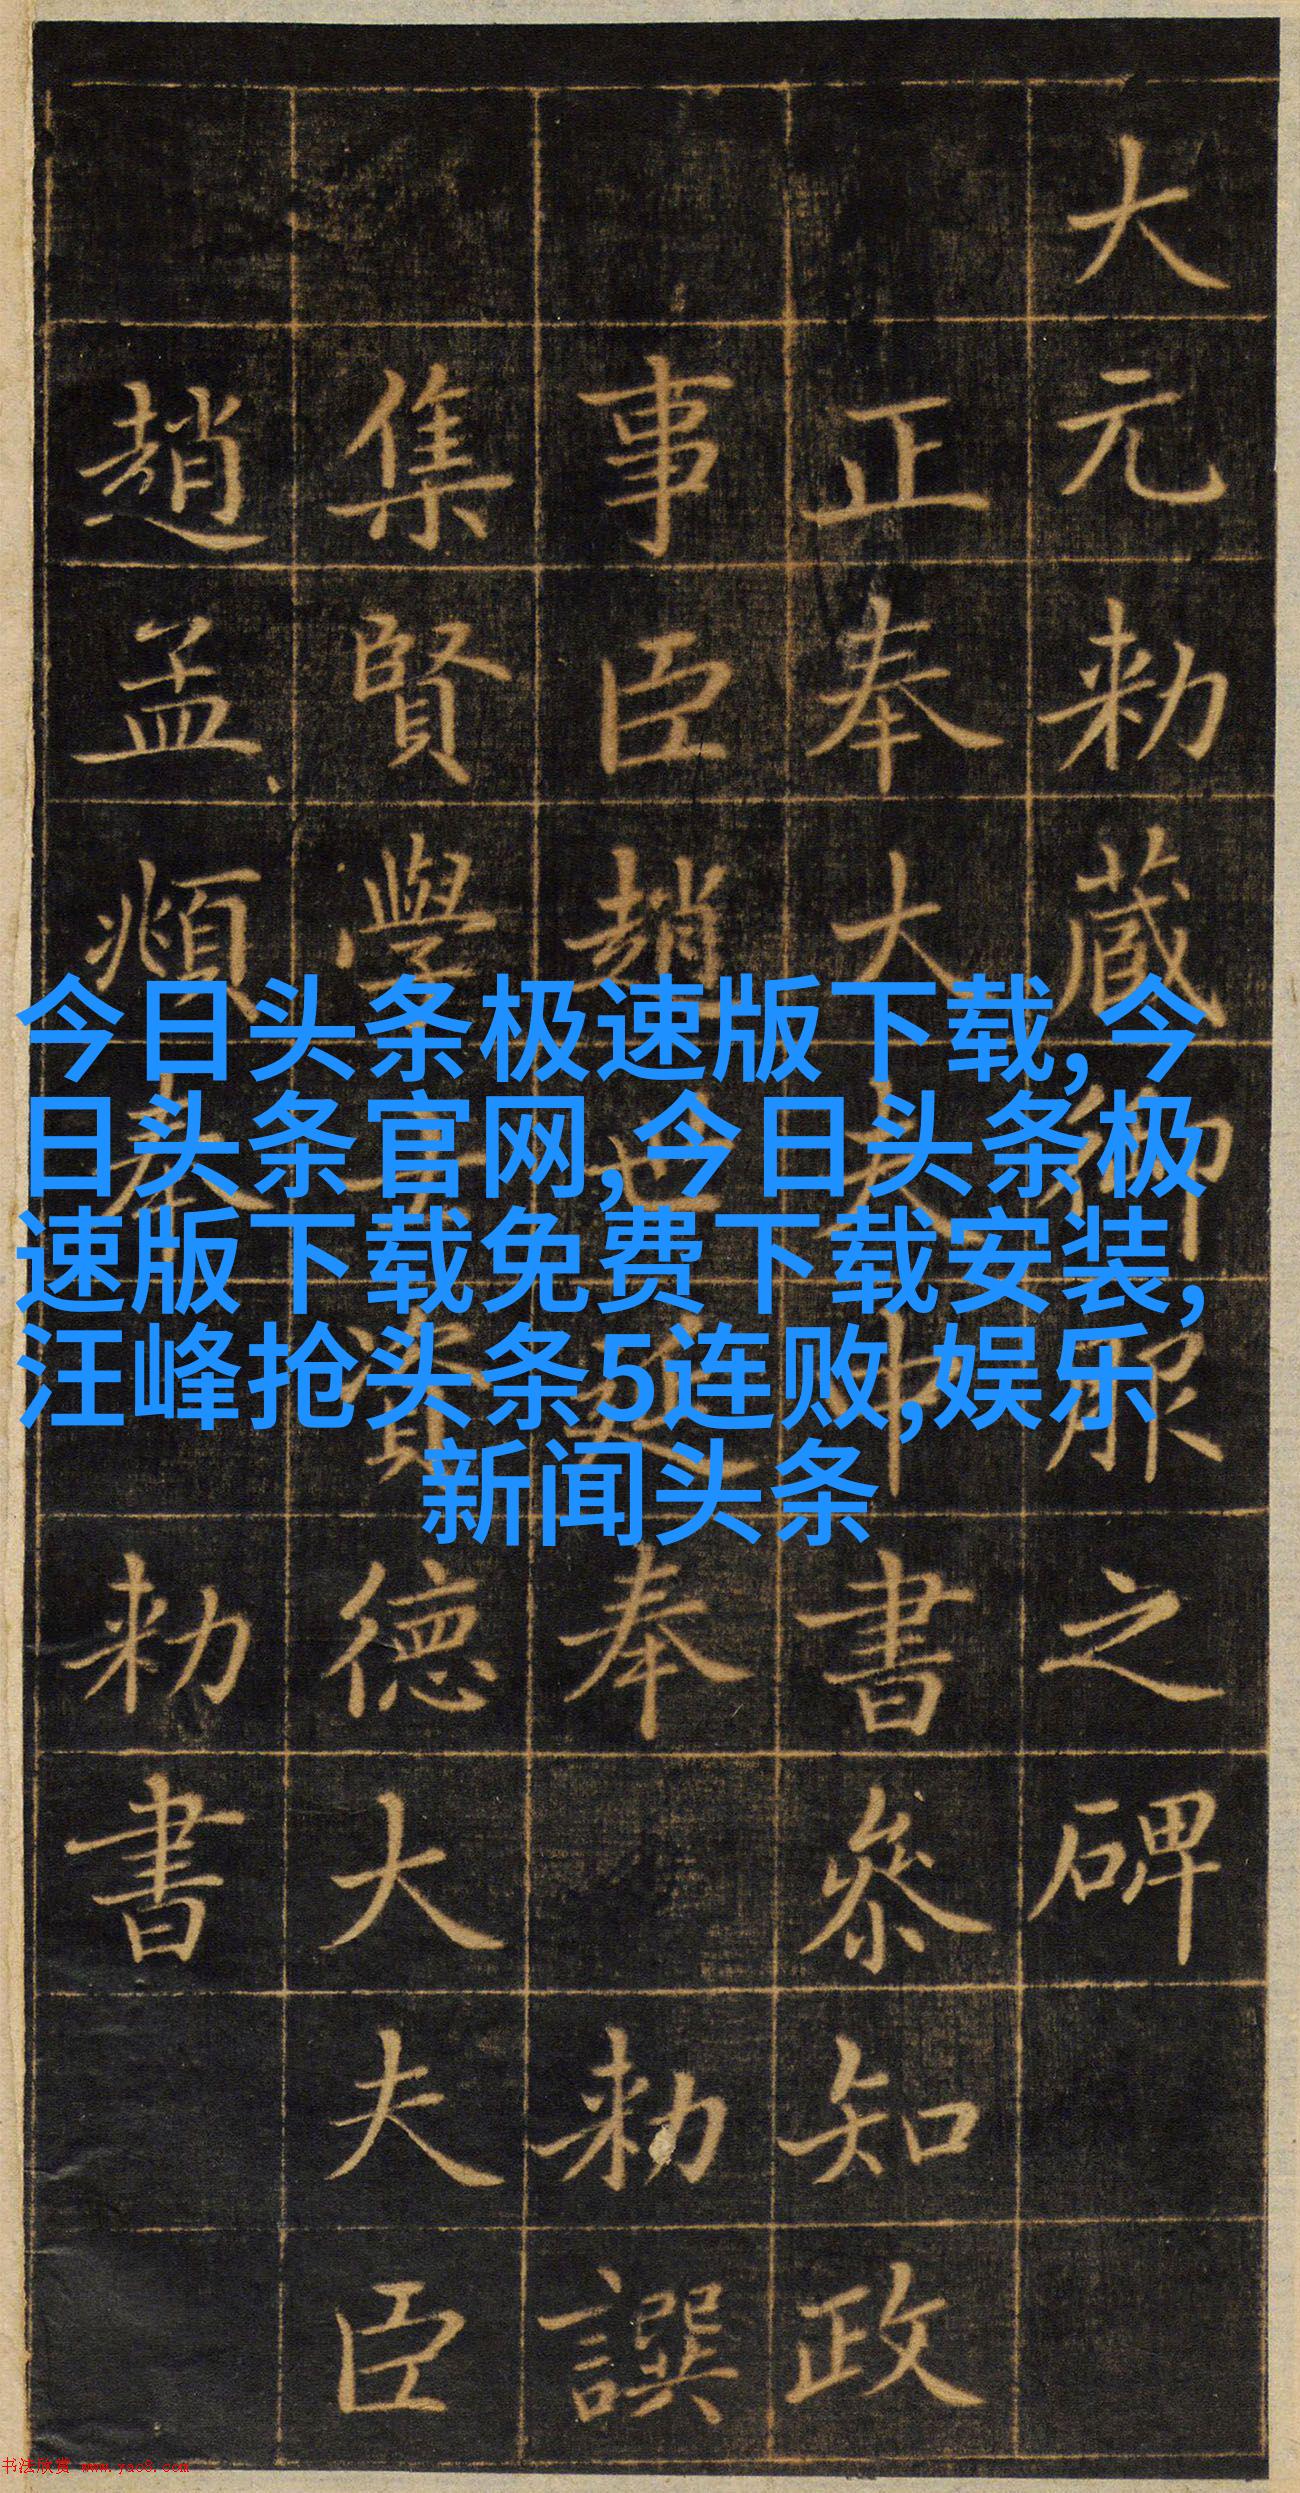 大元勑蔵御服之碑
正奉大夫中書叅知政
事臣趙世延奉 勑譔
集賢學士資德大夫臣
趙孟頫奉 勑書
今日头条极速版下载,今
日头条官网,今日头条极
速版下载免费下载安装,
汪峰抢头条5连败,娱乐
新闻头条
书法欣赏 www.yac8.com